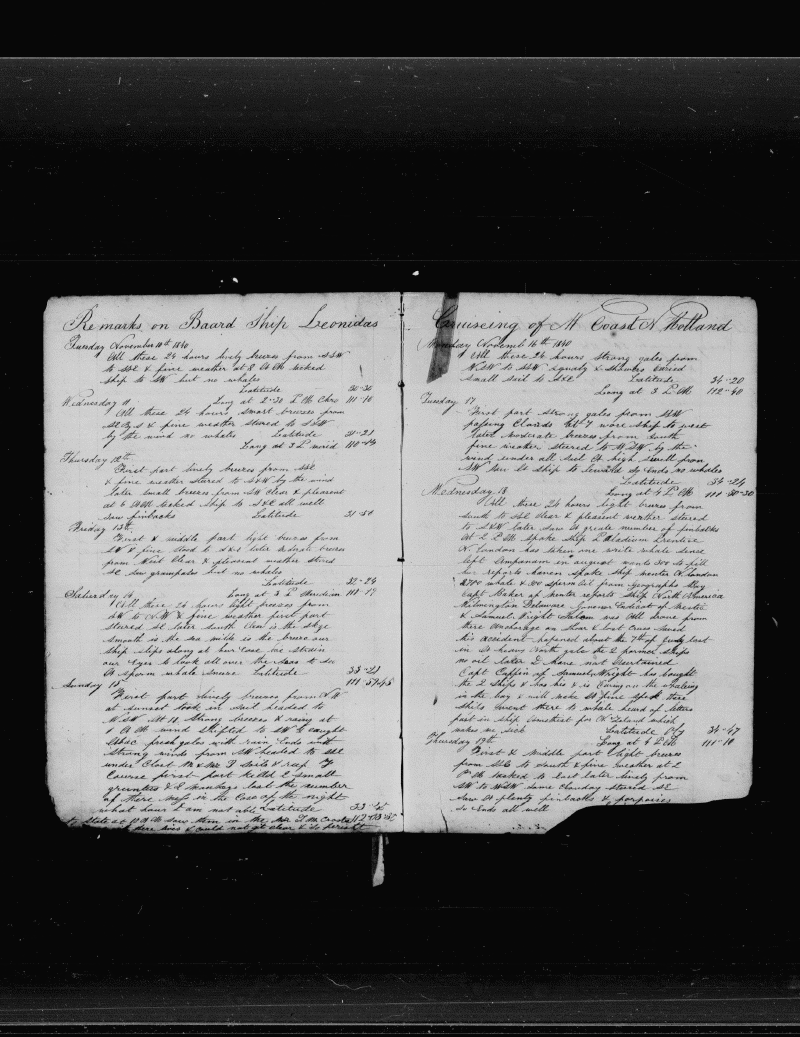 Remarks on Baard Ship Leonidas
Tuesday November 10th 1840
All these 24 hours lively breezes from SSW
to SSE & fine weather at 8 A M tacked
ship to SW but no whales
Latitude 30-36
Wednesday 11 Long at 2-30 P M Chro 111-10
All these 24 hours smart breezes from
& fine weather stered to SSW
by the wind no whales Latitude
Long at 3 P
Thursday 12th
First part lively breezes from SSE
& fine weather stered to S&W by the wind
later small breezes from SW clear & pleasent
at 6 A M tacked ship to S&E all well
saw finbacks Latitude 31-50
Friday 13th
First & middle part light breezes from
SW & fine stood to S&E later breezes
from West Clear & pleasent weather sterd
SE saw grampuses but no whales
Latitude 32-24
Saturday 14 Long at 3 P Meridian 110-17
All these 24 hours light breezes from
SW to NW & fine weather first part
stered SE later South Clear is the Skye
smooth is the sea mild is the breze our
ship slips along at hur Ease we strain
our Eyes to look all over the seas to see
A sperm whale Latitude 33-23
Sunday 15 111-57-45
First part lively breezes from NW
at sunset took in sail headed to
WSW At 10 Strong breezes & rainy at
1 A M wind shifted to SW & caught
fresh gales with rain Ends with
strong winds from SW headed to SE
under Close
Course first part kettld 2 small
of there
what hour I am not able Latitude 33-45
to state at A M saw them in the
there lives & could not git clear & so perish
Cruiseing of W Coast N Holland
Monday Novemb 16th 1840
All these 24 hours strong gales from
WSW to S&W squaly & showers caried
small sail to S&E Latitude 34-20
Long at 3 P M 112-40
Tuesday 17
First part strong gales from SSW
passing Clouds At 7 wore ship to west
later moderate breezes from south
fine weather stered to WSW by the
wind under all sail A high swell from
SW seen A ship to leward So Ends no whales
Latitude 34-24
Wednesday 18 Long at 4 P M 111-30-30
All these 24 hours light brezes from
south to SSE Clear & pleasent werther stered
to S&W later saw A greate number of finbacks
At 2 P M spoke ship Paladium Prentice
N. London has taken one write whale sence
left Ampanam in august wants 300 to fill
hur reports haven spoke ship mentor N. London
2700 whale & 100 sperm oil from Geographs Bay
Capt Baker of mentor reports Ship North America
Wilmington Delaware Contract of
& Samuel Wright Salem was All drove from
there Anchorage on Shor & lost Crews saved
this accident hapened about the 7th of July last
in A heavy North gale the 2 formed ships
no oil later I have not Asurtained
Capt Coffin of Samuel Wright has bought
the 2 Ships & has his & is Caring on the whaling
in the bay & will make A fine spec there
ships went there to whale heard of letters
past in ship for N. Zeland which
makes me sick Latitude Obs 34-47
Thursday 19th Long at 4 P M 111-10
First & Middle part light breezes
from SSE to south & fine weather at 2
P M tacked to East later lively from
SW to WSW some Clouday stered SE
Saw A plenty finbacks & porpoises
So Ends all well